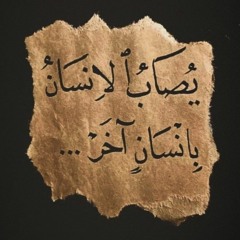 يُصَابُ ٱلاِنسَانُ
بِاِنْسَانٍ آخَرْ ...